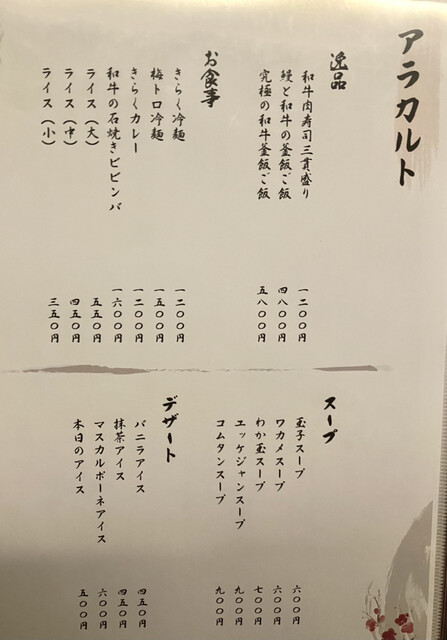 アラカルト
逸品
和牛肉寿司三貫盛り 一二〇〇円
鰻と和牛の釜飯ご飯 四八〇〇円
究極の和牛釜飯ご飯 五八〇〇円
お食事
きらく冷麺 一二〇〇円
梅トロ冷麺 一五〇〇円
きらくカレー 一二〇〇円
和牛の石焼きビビンバ 一六〇〇円
ライス（大） 五五〇円
ライス（中） 四五〇円
ライス（小） 三五〇円
スープ
玉子スープ 六〇〇円
ワカメスープ 六〇〇円
わか玉スープ 七〇〇円
ユッケジャンスープ 九〇〇円
コムタンスープ 九〇〇円
デザート
バニラアイス 四五〇円
抹茶アイス 四五〇円
マスカルポーネアイス 六〇〇円
本日のアイス 五〇〇円